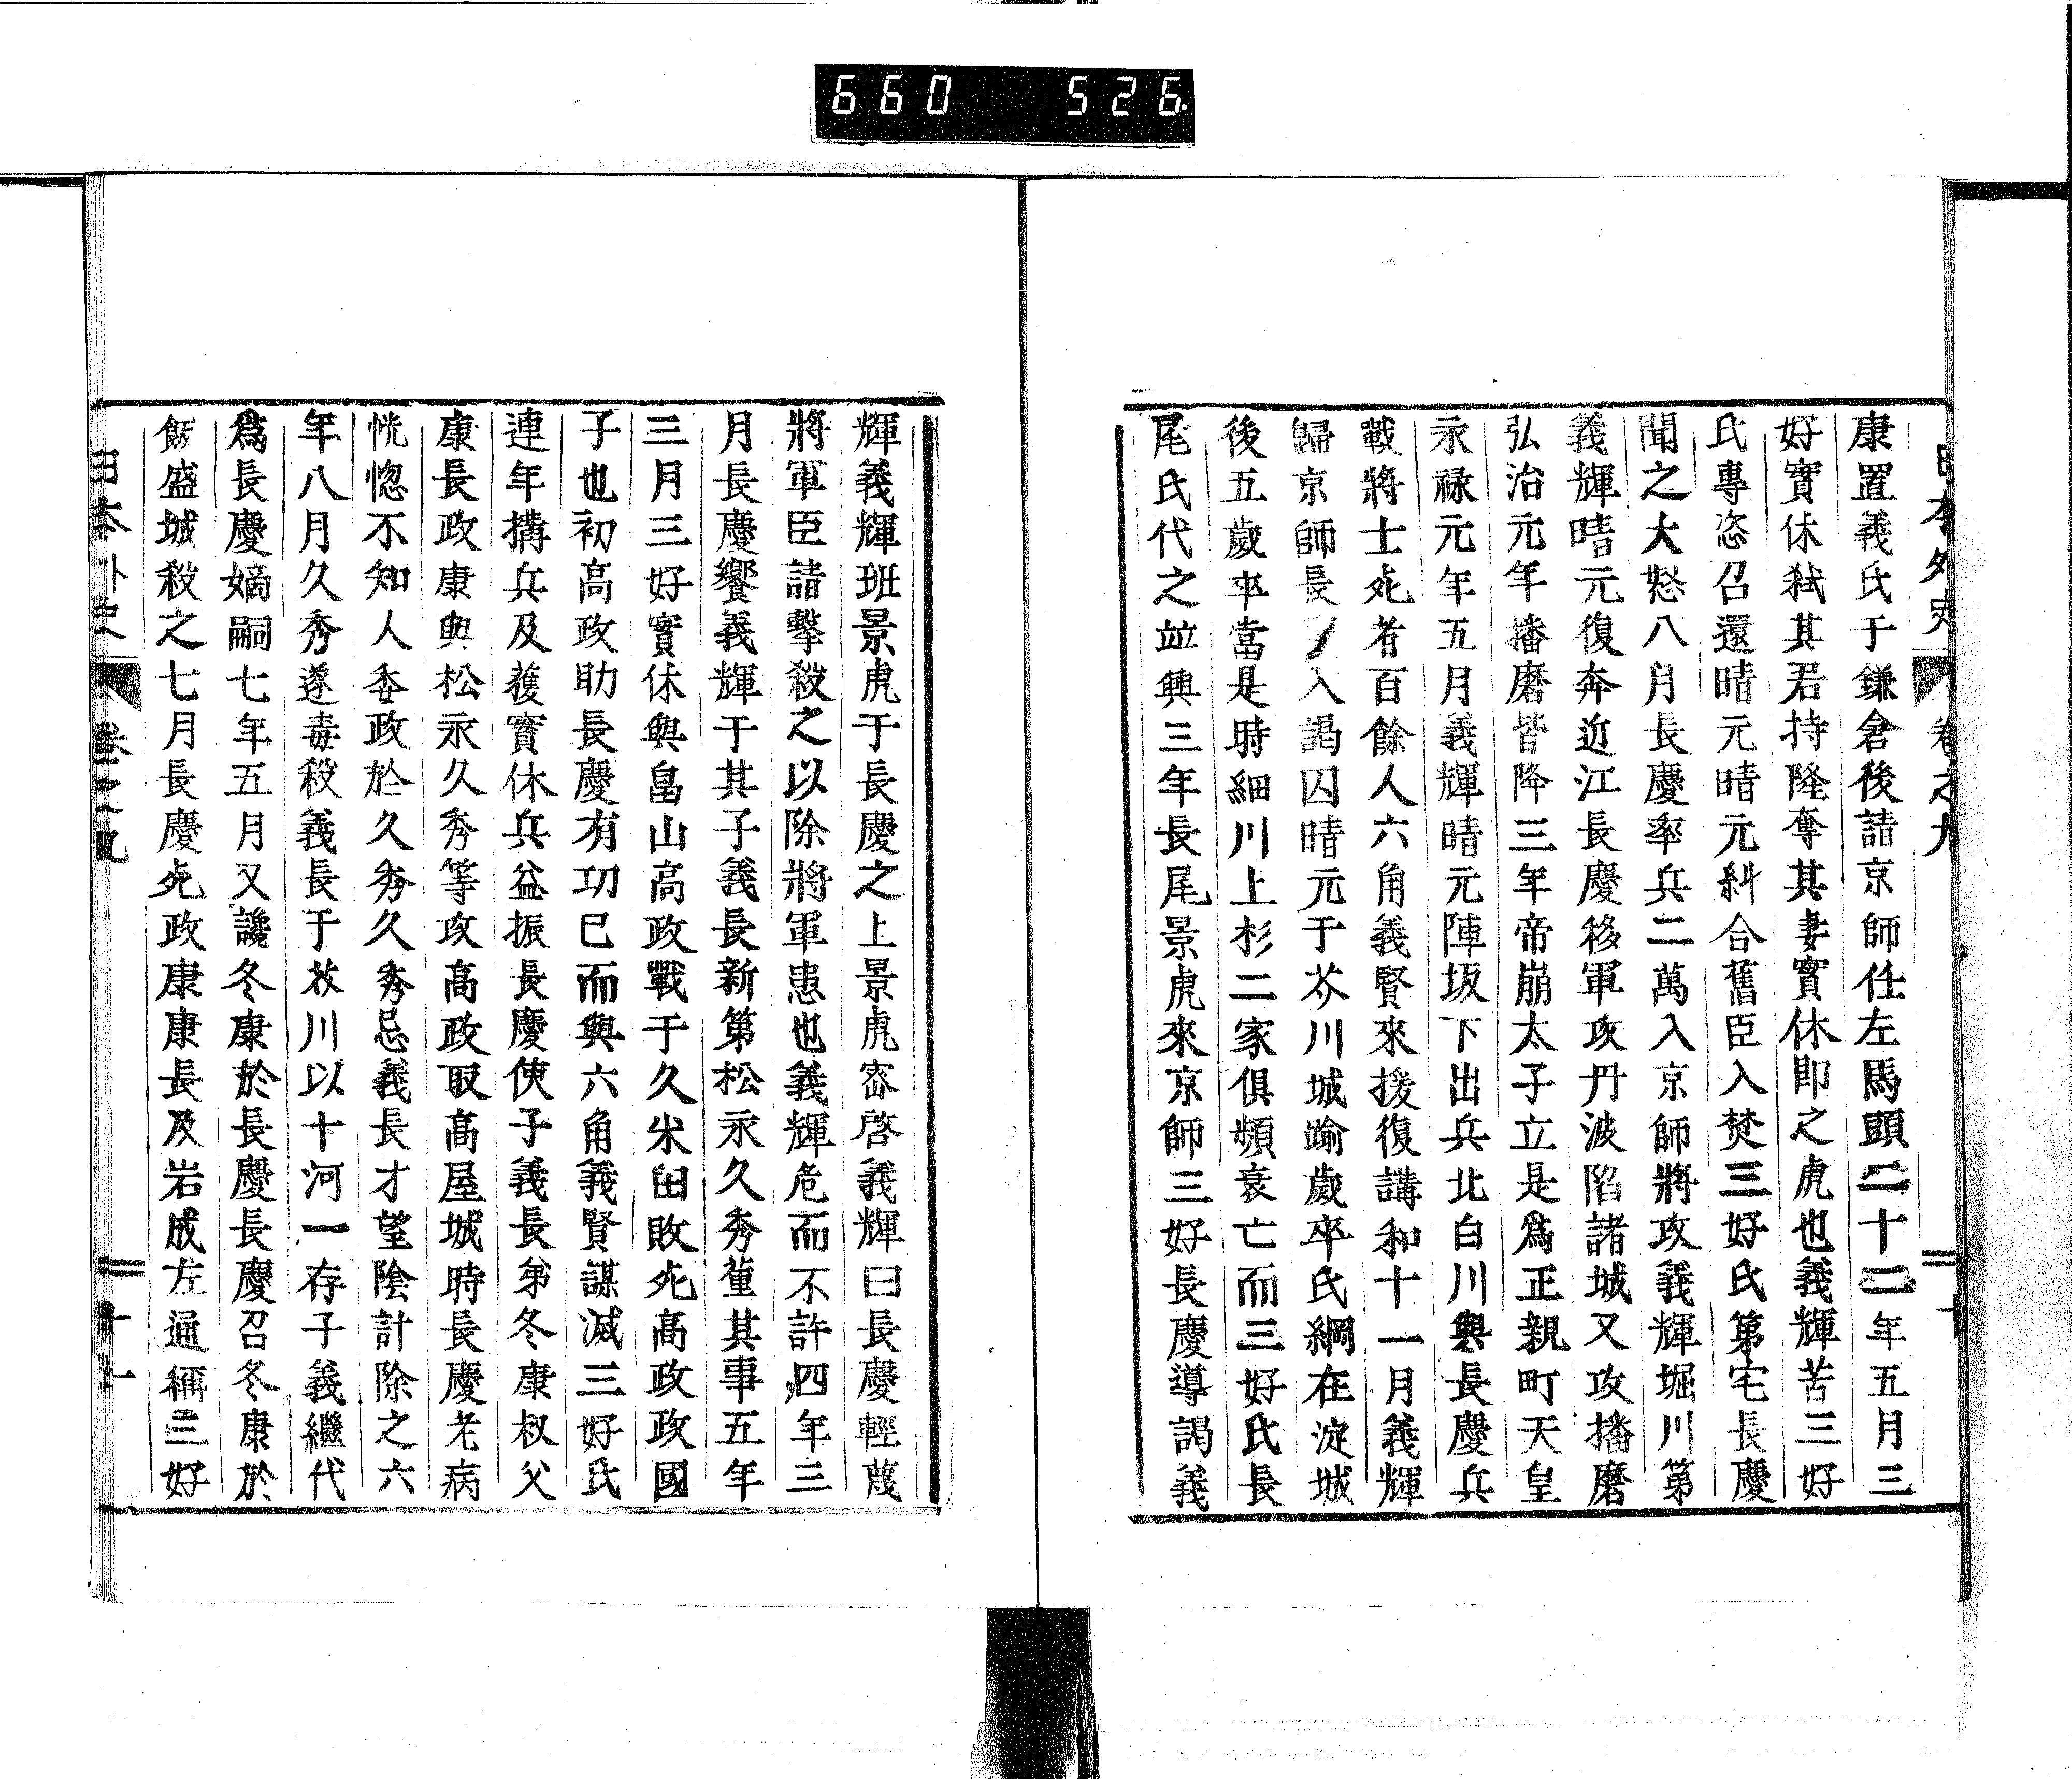 660 526.
日本外史 卷之九 十
康置義氏于鎌倉後請京師仕左馬頭二十二年五月三
好實休弑其君持隆奪其妻實休即之虎也義輝苦三好
氏專恣召還晴元晴元糾合舊臣入焚三好氏第宅長慶
聞之大怒八月長慶率兵二萬入京師將攻義輝堀川第
義輝晴元復奔近江長慶移軍攻丹波陷諸城又攻播磨
弘治元年播磨皆降三年帝崩太子立是爲正親町天皇
永祿元年五月義輝晴元陣坂下出兵北白川與長慶兵
戰將士死者百餘人六角義賢來援復講和十一月義輝
歸京師長入謁囚晴元于芥川城踰歲卒氏綱在淀城
後五歲卒當是時細川上杉二家俱頻衰亡而三好氏長
尾氏代之竝興三年長尾景虎來京師三好長慶導謁義
輝義輝班景虎于長慶之上景虎密啓義輝曰長慶輕蔑
將軍臣請擊殺之以除將軍患也義輝危而不許四年三
月長慶饗義輝于其子義長新第松永久秀董其事五年
三月三好實休與畠山高政戰于久米田敗死高政政國
子也初高政助長慶有功已而與六角義賢謀滅三好氏
連年搆兵及獲實休兵益振長慶使子義長弟冬康叔父
康長政康與松永久秀等攻高政取高屋城時長慶老病
恍惚不知人委政於久秀久秀忌義長才望陰計除之六
年八月久秀遂毒殺義長于芥川以十河一存子義繼代
爲長慶嫡嗣七年五月又讒冬康於長慶長慶召冬康於
飯盛城殺之七月長慶死政康康長及岩成左通稱三好
日本外史 卷之九 十一